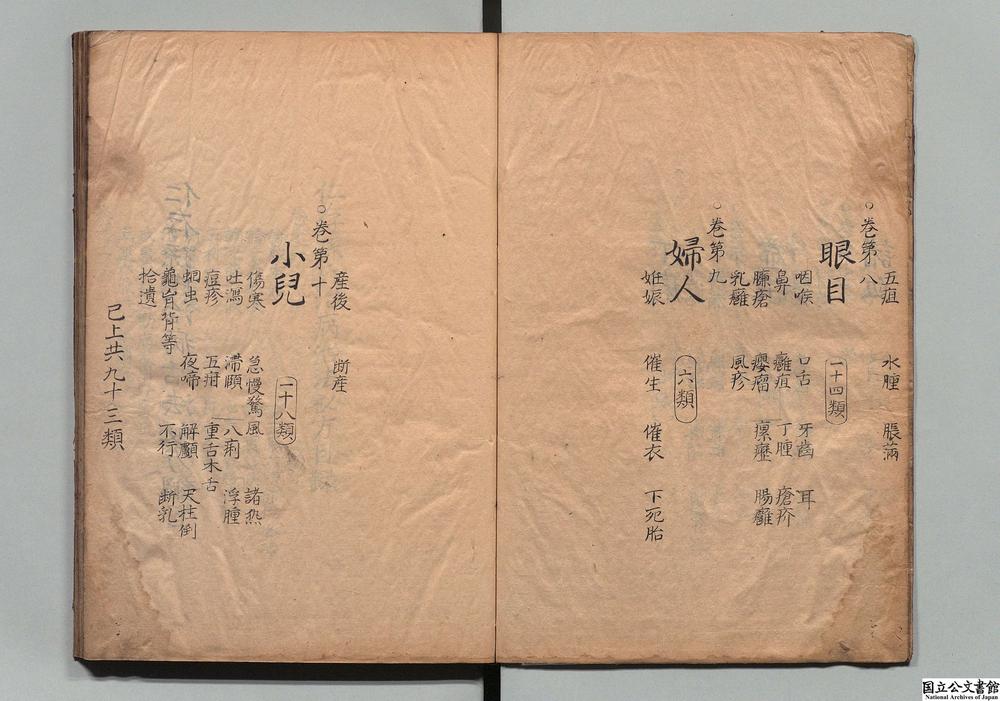 五疽 水腫 脹满
○卷第八
眼目 一十四類
咽喉 口舌 牙齒 耳
鼻 癰疽 丁腫 瘡疥
臁瘡 瘿瘤 瘰癧 腸癰
乳癰 風疹
○卷第九
婦人 六類
妊娠 催生 催衣 下死胎
産後 断産
○卷第十
小兒 一十八類
傷寒 急慢驚風 諸热
吐瀉 滞頤 八痢 浮腫
痘疹 五疳 重舌木舌
蛔虫 夜啼 解顱 天柱倒
龜胷背等 不行 断乳
拾遺
已上共九十三類
国立公文書館
National Archives of Japan